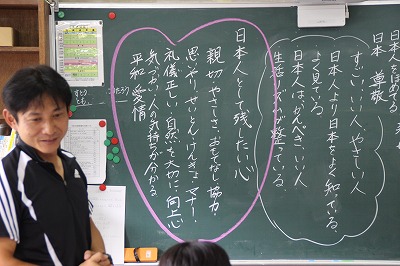 日本人をほめる
日本 道徳
すごい、いい人、やさしい人
日本人より日本をよく知っている。
よく見ている
日本人は、かんぺき、いい人
生活ルールが整っている。
日本人として残したい心
親切 やさしさ、おもてなし 協力
思いやり、せいとん、けんきょ、マナー!
礼儀正しい 自然を大切に 向上心
気づかい 人の気持ちが分かる
平和 愛情